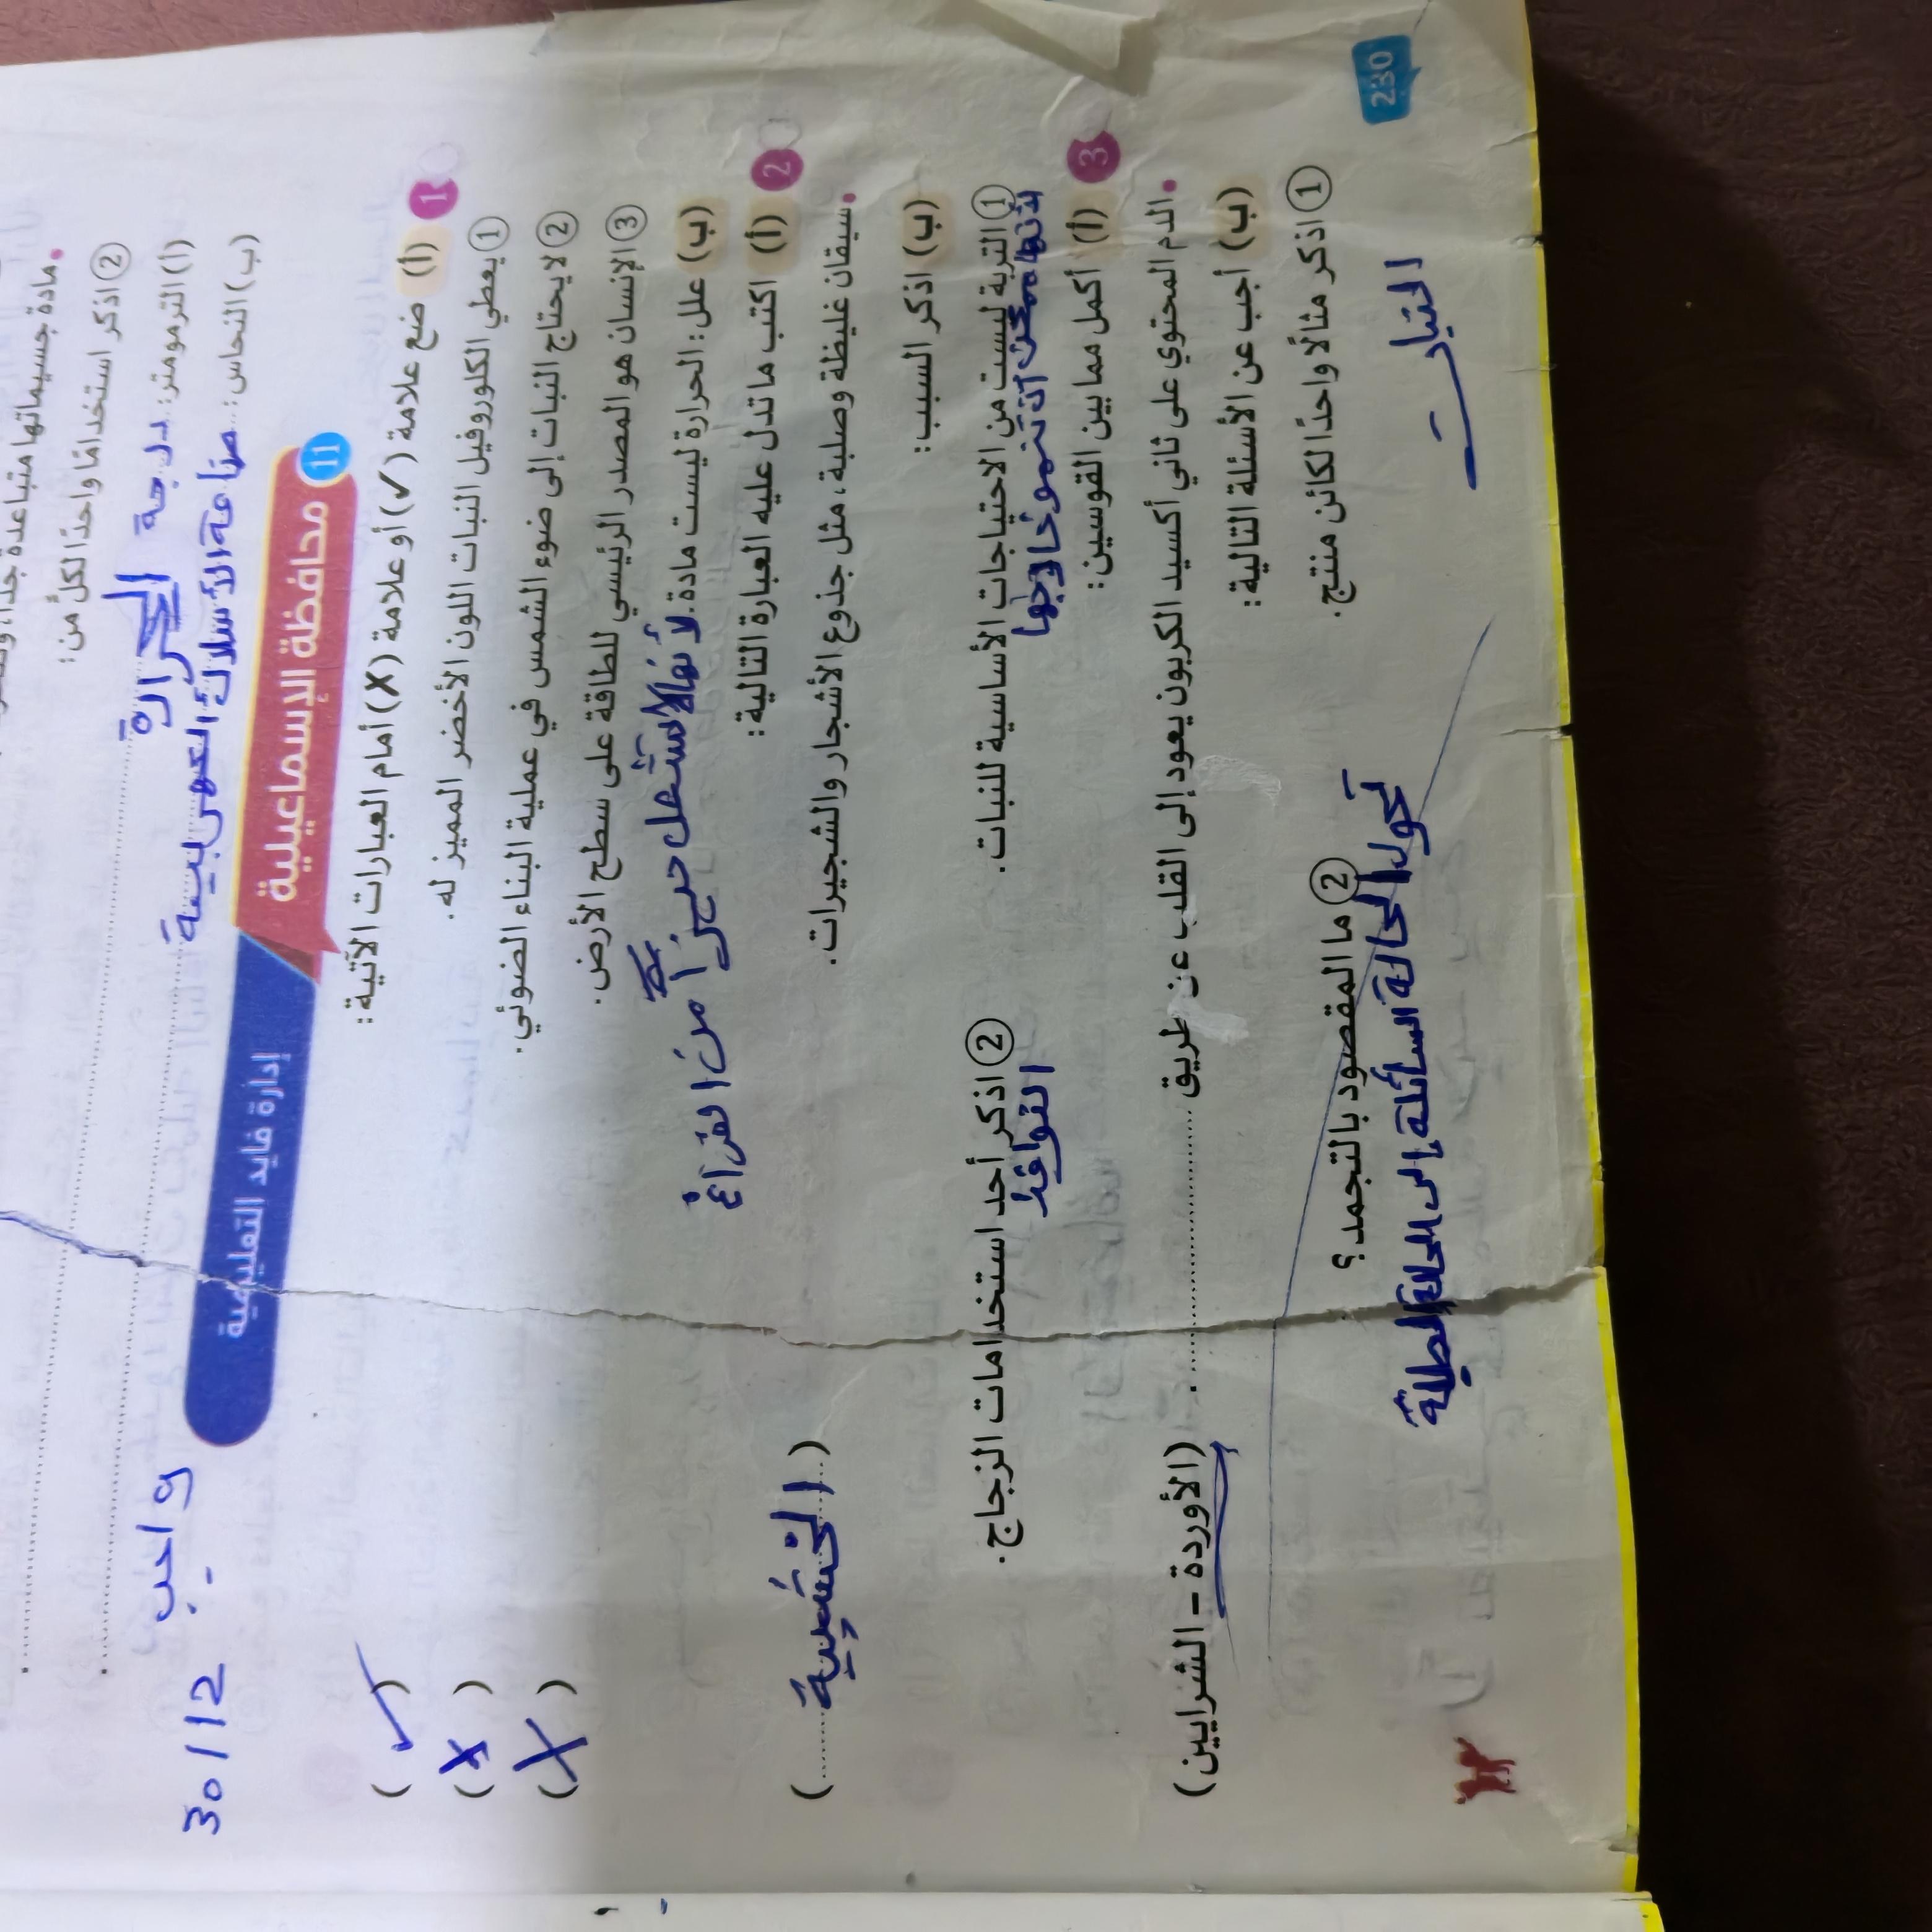 مادة جسيماتها متباعدة جدًا
② اذكر استخدامًا واحدًا لكلٍّ من:
(أ) الترمومتر: درجة الحرارة
(ب) النحاس: صناعة الأسلاك الكهربية
30/12 واجب
11 محافظة الإسماعيلية إدارة فايد التعليمية
1 (أ) ضع علامة (✓) أو علامة (✗) أمام العبارات الآتية:
① يعطي الكلوروفيل النبات اللون الأخضر المميز له. (✓)
② لا يحتاج النبات إلى ضوء الشمس في عملية البناء الضوئي. (X)
③ الإنسان هو المصدر الرئيسي للطاقة على سطح الأرض. (X)
(ب) علل: الحرارة ليست مادة. لأنها لا تشغل حيزاً من الفراغ
2 (أ) اكتب ما تدل عليه العبارة التالية:
سيقان غليظة وصلبة، مثل جذوع الأشجار والشجيرات. (الخشبية)
(ب) اذكر السبب:
① التربة ليست من الاحتياجات الأساسية للنبات. ② اذكر أحد استخدامات الزجاج.
لأنها ممكن أن تنمو خارجها النوافذ
3 (أ) أكمل مما بين القوسين:
الدم المحتوي على ثاني أكسيد الكربون يعود إلى القلب عن طريق ........ . (الأوردة – الشرايين)
(ب) أجب عن الأسئلة التالية:
① اذكر مثالًا واحدًا لكائن منتج. ② ما المقصود بالتجمد؟
تحول الحالة السائلة إلى الحالة الصلبة
230